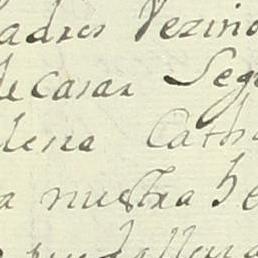 adres Vezino
de casar Seg
lena Catho
a nuestra he